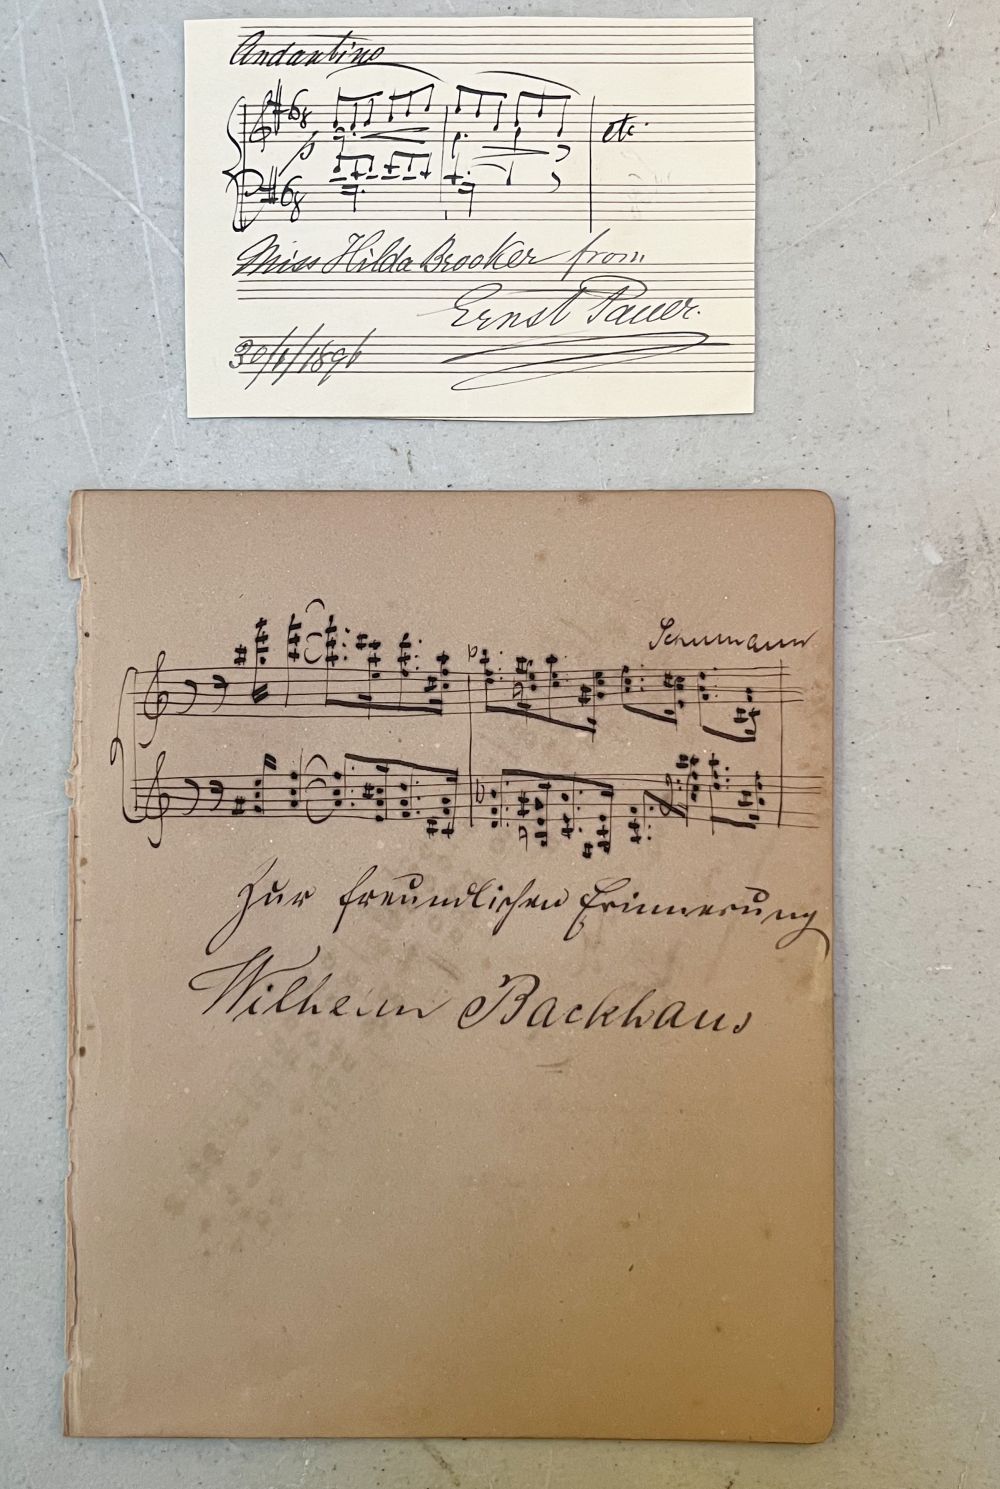 Andantino
6/8
p
etc.
6/8
Miss Hilda Brooker from
Ernst Pauer.
30/6/1896
Schumann
Zur freundlichen Erinnerung
Wilhelm Backhaus